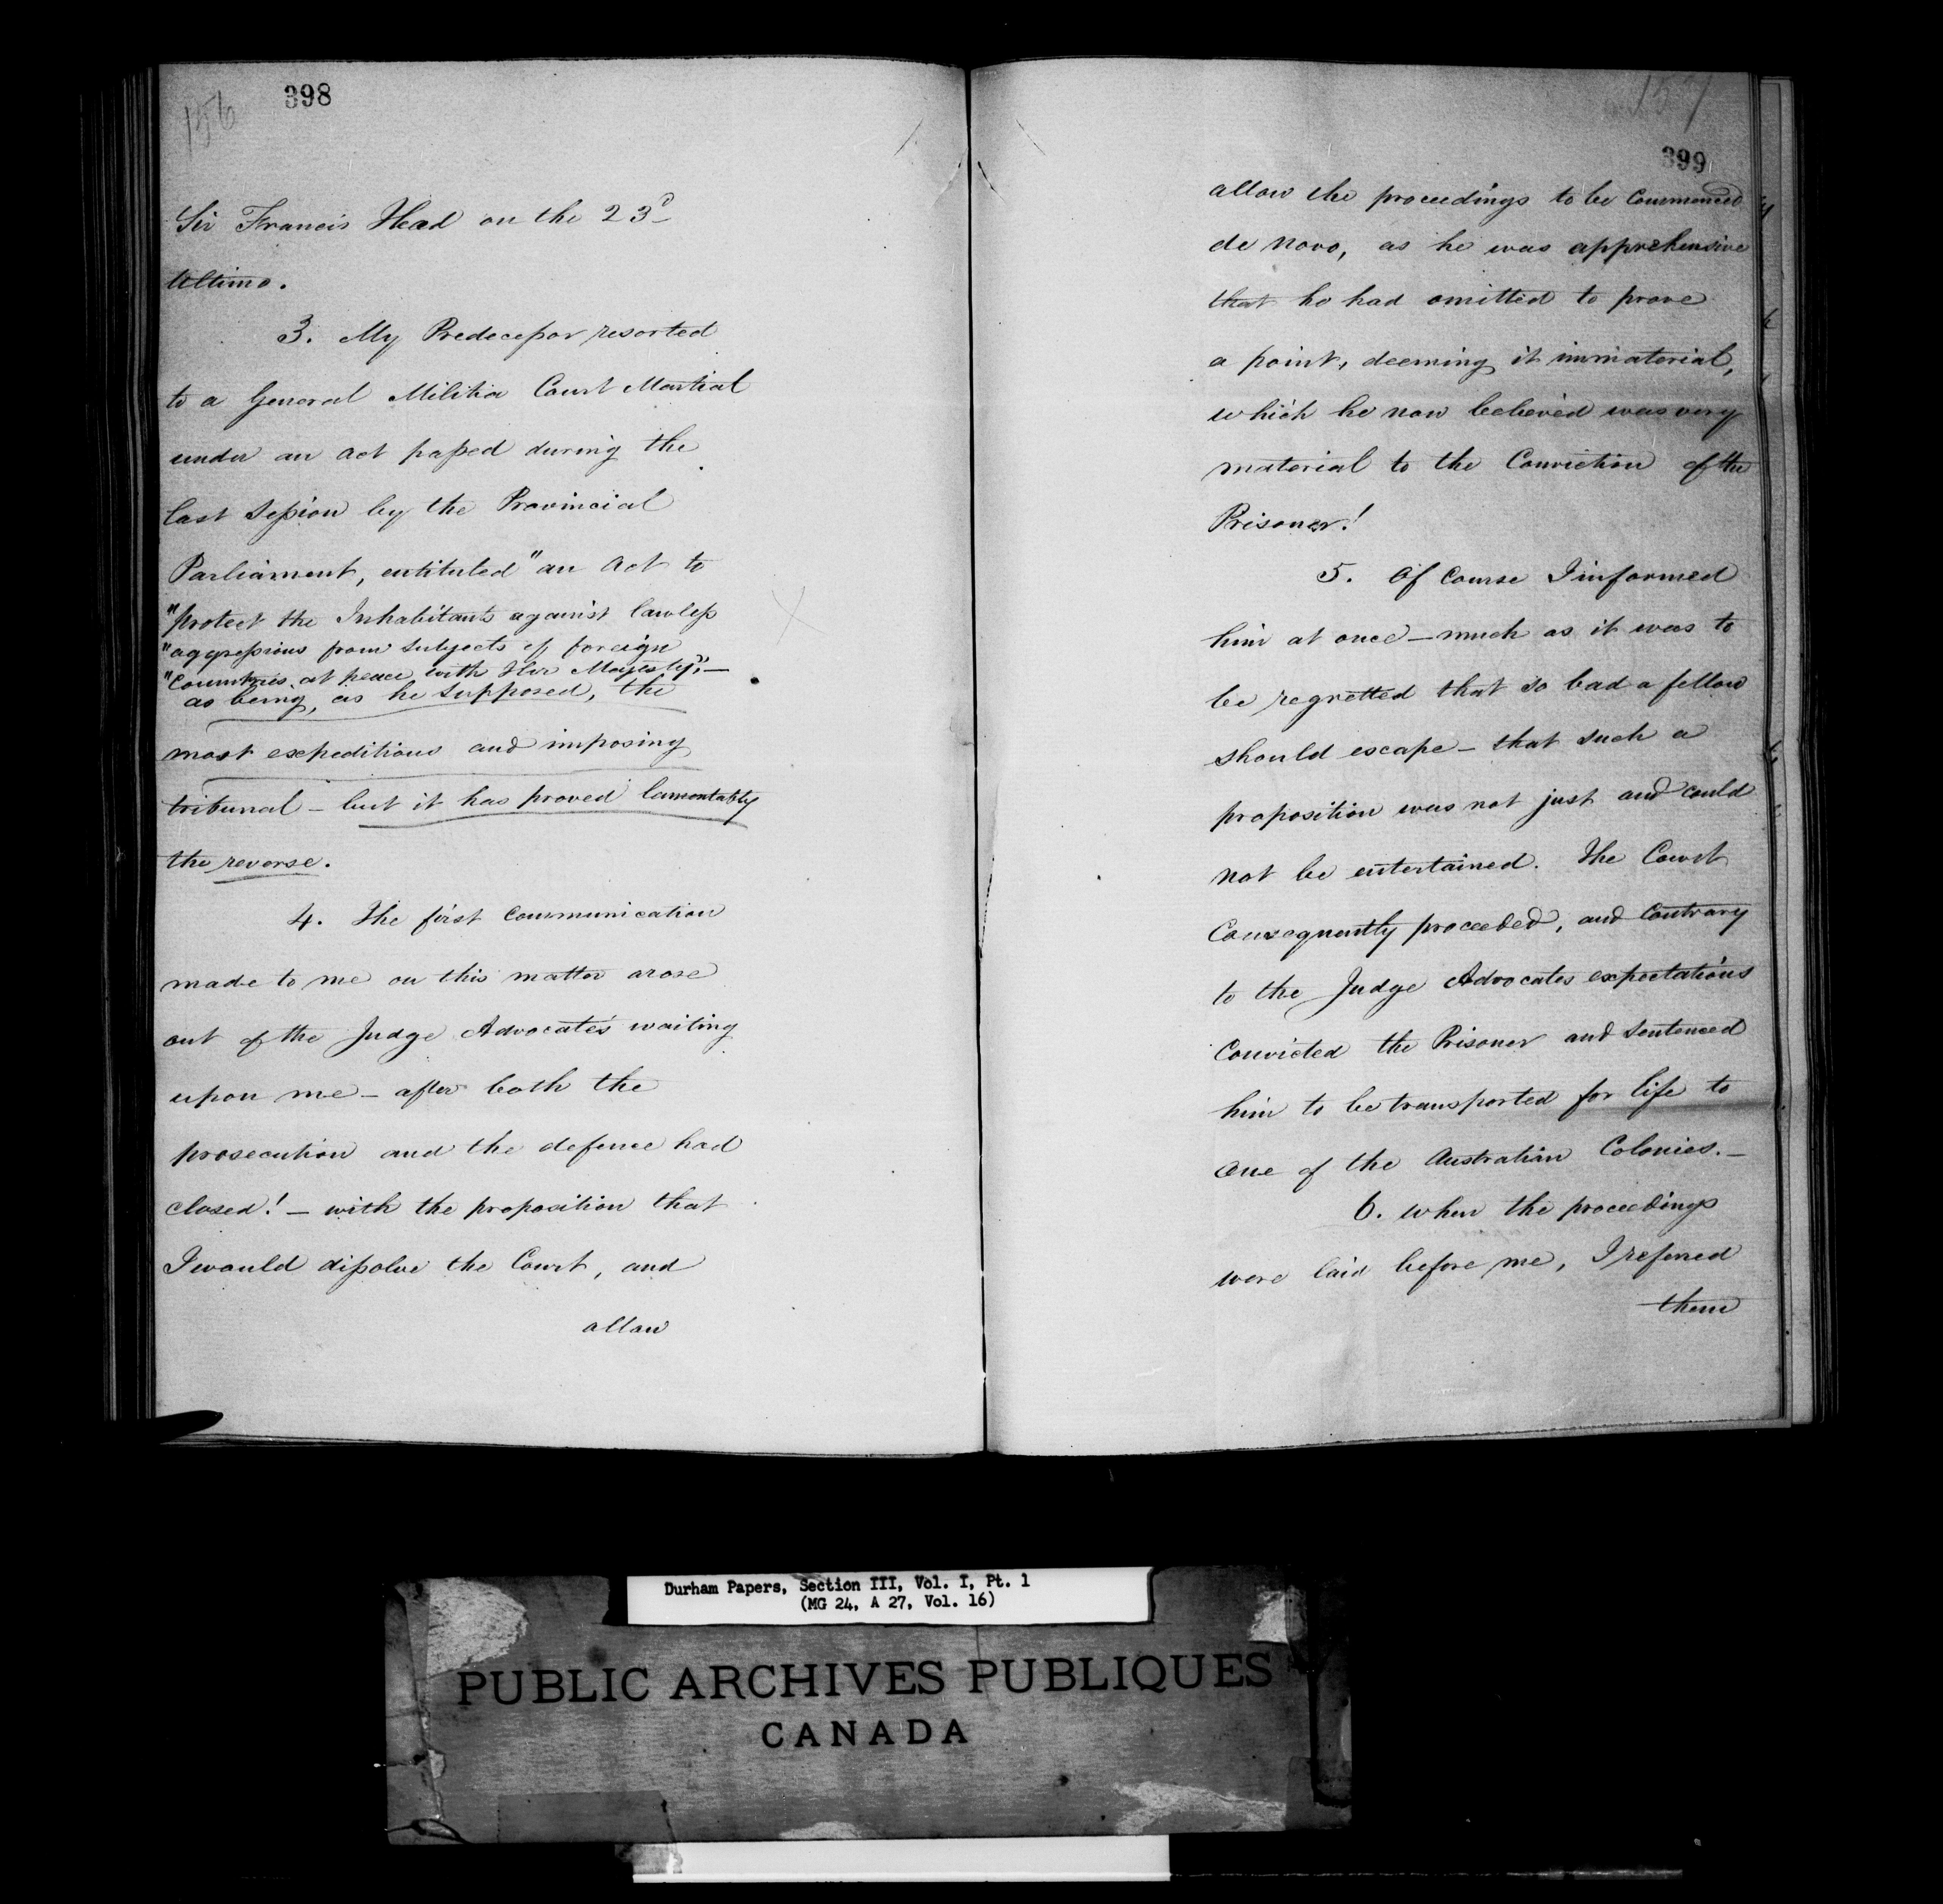 156
398
Sir Francis Head on the 23d
Ultimo.
3. My Predecessor resorted
to a General Militia Court Martial
under an act passed during the
last Session by the Provincial
Parliament, entituled "an Act to
"protect the Inhabitants against lawless
"aggressions from Subjects of foreign
"Countries at peace with Her Majesty";—
as being, as he supposed, the
most expeditious and imposing
tribunal — but it has proved lamentably
the reverse.
4. The first Communication
made to me on this matter arose
out of the Judge Advocate's waiting
upon me — after both the
prosecution and the defence had
closed! — with the proposition that
I would dissolve the Court, and
allow
157
399
allow the proceedings to be Commenced
de novo, as he was apprehensive
that he had omitted to prove
a point, deeming it immaterial,
which he now believed was very
material to the Conviction of the
Prisoner!
5. Of Course I informed
him at once — much as it was to
be regretted that so bad a fellow
should escape — that such a
proposition was not just and could
not be entertained. The Court
Consequently proceeded, and Contrary
to the Judge Advocates expectations
Convicted the Prisoner and Sentenced
him to be transported for life to
one of the Australian Colonies. —
6. When the proceedings
were laid before me, I referred
them
Durham Papers, Section III, Vol. I, Pt. 1
(MG 24, A 27, Vol. 16)
PUBLIC ARCHIVES PUBLIQUES
CANADA